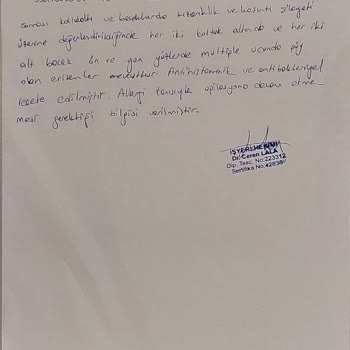 sonrası koldaki ve bacaklarda kızarıklık ve kaşıntı şikayeti
üzerine değerlendirildiğinde her iki koltuk altında ve her iki
alt bacak ön ve yan yüzlerde multiple ucunda püy
olan eritemler mevcuttur. Antihistaminik ve antibakteriyel
reçete edilmiştir. Allerji tanısıyla epilasyona devam etme-
mesi gerektiği bilgisi verilmiştir.
İŞYERİ HEKİMİ
Dr. Ceren LALA
Dip. Tesc. No:223312
Sertifika No:42838